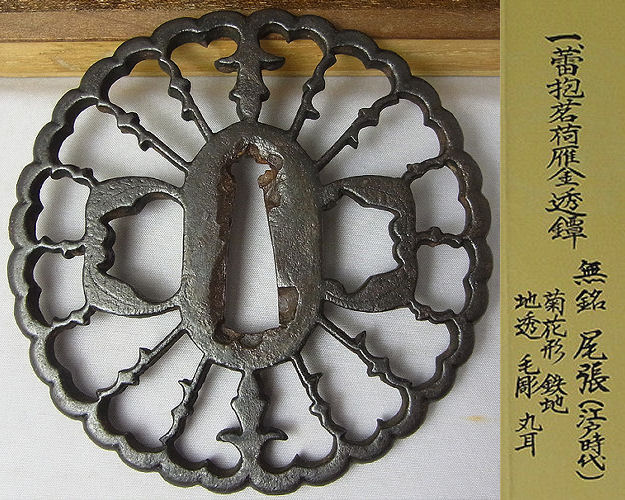 一、蕾抱茗荷雁金透鐔
無銘 尾張(江戸時代)
菊花形 鉄地
地透 毛彫 丸耳